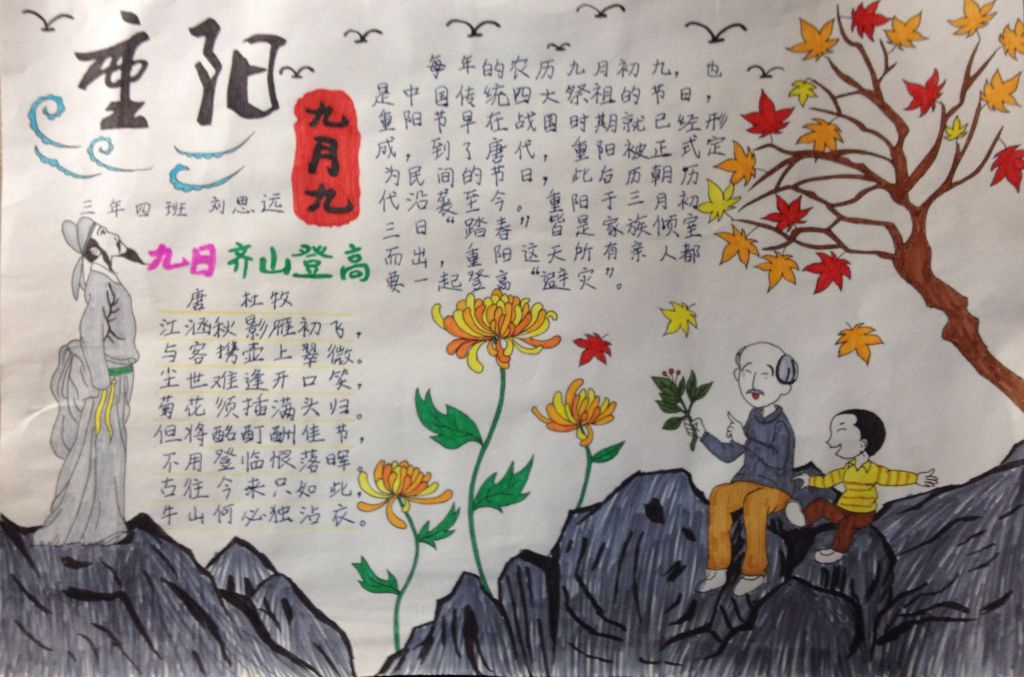 重阳
九月九
三年四班 刘思远
每年的农历九月初九，也
是中国传统四大祭祖的节日，
重阳节早在战国时期就已经形
成，到了唐代，重阳被正式定
为民间的节日，此后历朝历
代沿袭至今。重阳于三月初
三日“踏春”皆是家族倾室
而出，重阳这天所有亲人都
要一起登高“避灾”。
九日齐山登高
唐 杜牧
江涵秋影雁初飞，
与客携壶上翠微。
尘世难逢开口笑，
菊花须插满头归。
但将酩酊酬佳节，
不用登临恨落晖。
古往今来只如此，
牛山何必独沾衣。